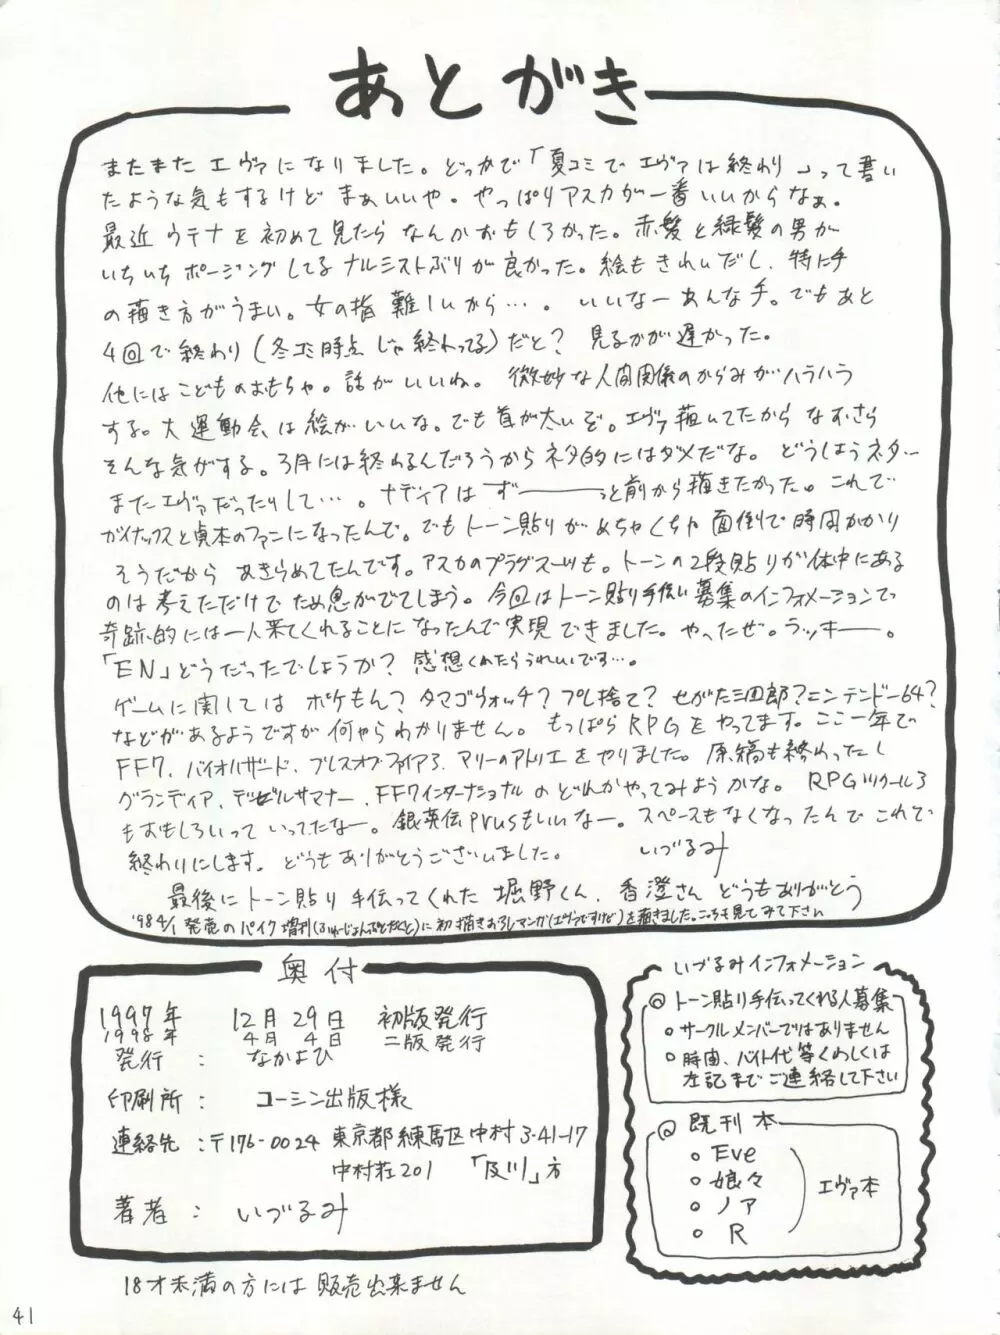 あとがき
またまた エヴァになりました。どっかで「夏コミで エヴァは終わり」って書い
たような気もするけど まぁいいや。やっぱりアスカが一番いいからなぁ。
最近 ウテナを初めて見たら なんかおもしろかった。赤髪と緑髪の男が
いちいち ポージングしてる ナルシストぶりが良かった。絵もきれいだし、特に手
の描き方がうまい。女の指 難しいから…。いいなーあんな手。でもあと
4回で終わり(冬コミ時点じゃ終わってる)だと? 見るのが遅かった。
他にはこどものおもちゃ。話がいいね。微妙な人間関係のからみがハラハラ
する。大運動会は絵がいいな。でも首が太いぞ。エヴァ描いてたから なおさら
そんな気がする。3月には終わるんだろうからネタ的にはダメだな。どうしようネタ…
またエヴァだったりして…。ナディアは ずーーっと前から描きたかった。これで
ガイナックスと貞本のファンになったんで。でもトーン貼りがめちゃくちゃ面倒で時間かかり
そうだから あきらめてたんです。アスカのプラグスーツも。トーンの2段貼りが体中にある
のは考えただけで ため息がでてしまう。今回はトーン貼り手伝い募集のインフォメーションで
奇跡的には一人来てくれることになったんで実現できました。やったぜ。ラッキー。
「EN」どうだったでしょうか? 感想くれたらうれしいです…。
ゲームに関しては ポケもん? タマゴウォッチ? プレ捨て? せがた三四郎? ニンテンドー64?
などがあるようですが何やらわかりません。もっぱらRPGをやってます。ここ一年で
FF7、バイオハザード、ブレスオブファイア3、マリーのアトリエをやりました。原稿も終わったし
グランディア、デビルサマナー、FF7インターナショナルのどれかやってみようかな。RPGツクール3
もおもしろいって いってたなー。銀英伝prusもいいなー。スペースもなくなったんで これで
終わりにします。どうもありがとうございました。 いづるみ
最後にトーン貼り 手伝ってくれた 堀野くん、香澄さん どうもありがとう
'98 4/1 発売のパイク増刊(ふゅーじょんぷろだくと)に初描きおろしマンガ(エヴァですけど)を描きました。こっちも見てみて下さい
奥付
1997年 12月 29日 初版発行
1998年 4月 4日 二版発行
発行 : なかよひ
印刷所 : コーシン出版様
連絡先 : 〒176-0024 東京都練馬区中村3-41-17
中村荘201 「及川」方
著者 : いづるみ
いづるみインフォメーション
◎トーン貼り手伝ってくれる人募集
○サークルメンバーではありません
○時間、バイト代等くわしくは
左記までご連絡して下さい
◎ 既刊本
○ Eve
○ 娘々
○ ノア
○ R
エヴァ本
18才未満の方には 販売出来ません
41